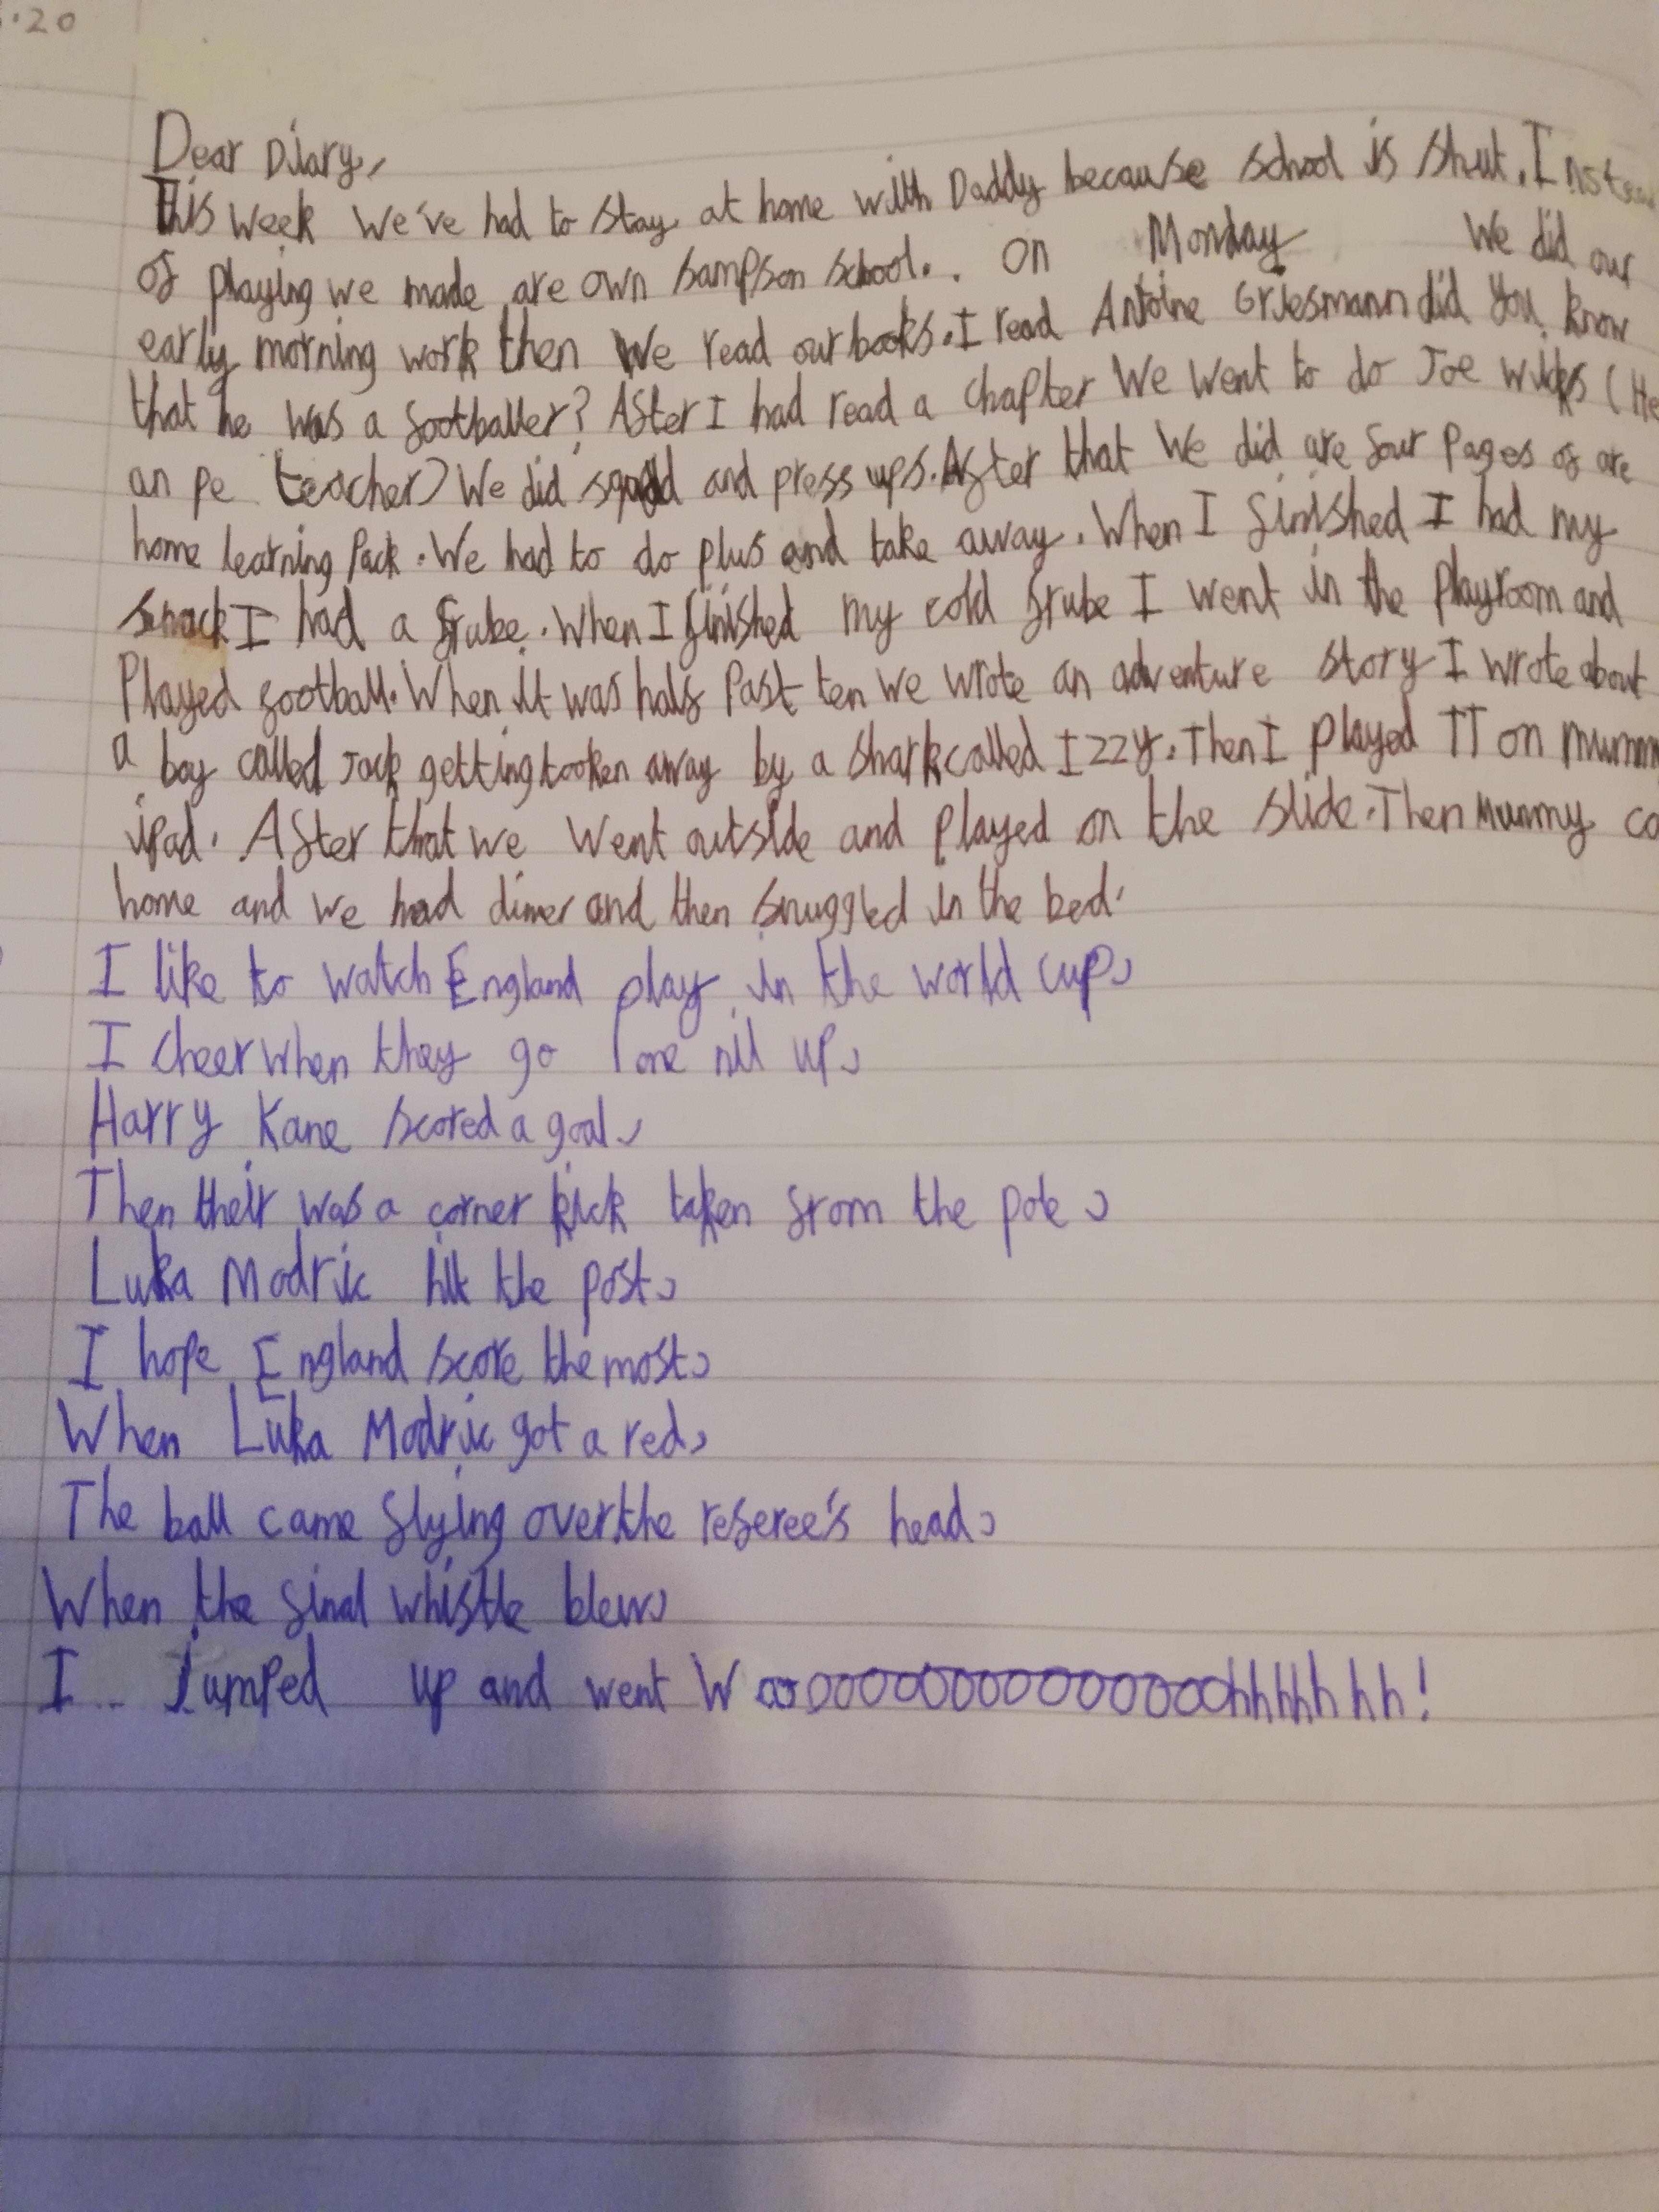 .20
Dear Diary,
This week we've had to stay at home with Daddy because school is shut. Instead
of playing we made are own sampson school. . on Monday We did our
early morning work then We read our books. I read Antoine Griesmann did you know
that he was a footballer? After I had read a chapter We went to do Joe wilks (He
an pe teacher) We did and press ups. After that we did are four pages of are
home learning pack. We had to do plus and take away. When I finished I had my
snack I had a frube. When I finished my cold frube I went in the playroom and
Played football. When it was half past ten we wrote an adventure story I wrote about
a boy called Jack getting tooken away by a shark called Izzy. Then I played TT on mumm
ipad. After that we went outside and played on the slide. Then Mummy co
home and we had dinner and then snuggled in the bed.
I like to watch England play in the world cup,
I cheer when they go one nil up,
Harry Kane scored a goal,
Then their was a corner kick taken from the pole,
Luka Modric hit the post,
I hope England score the most,
When Luka Modric got a red,
The ball came flying over the referee's head,
When the final whistle blew,
I .. Jumped up and went Woooooooooooooooooohhhhhhh!